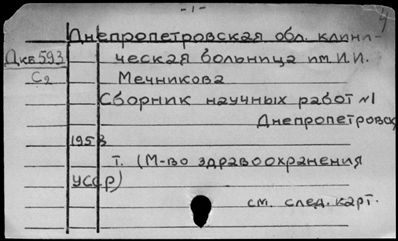 -1-
Днепропетровская обл. клини-
Дкв593 ческая больница им. И.И.
С2 Мечникова
Сборник научных работ №1
Днепропетровск
1958
т. (М-во здравоохранения
УССР)
см. след. карт.